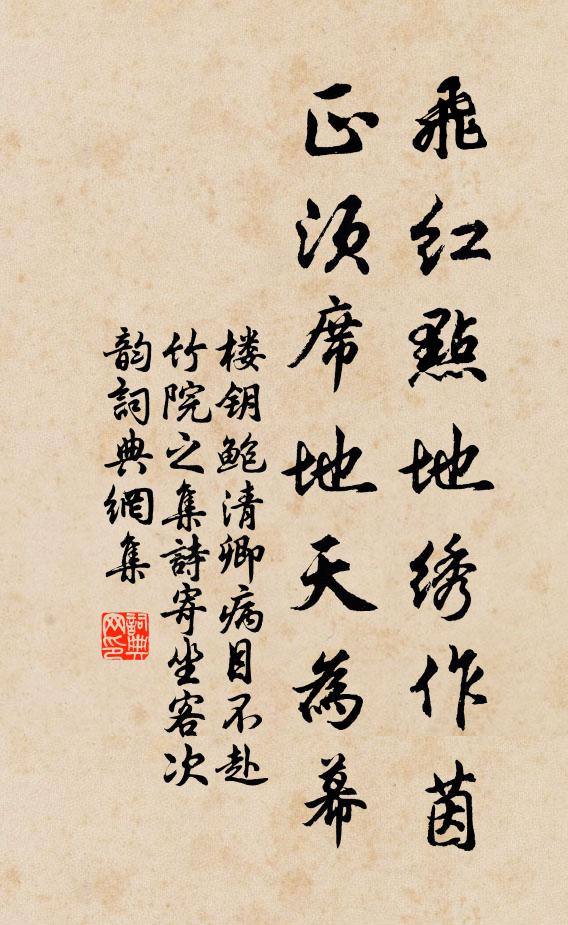 飛紅點地綉作茵
正須席地天為幕
楼钥鲍清卿病目不赴
竹院之集詩寄坐客次
韵詞典網集
詞典
网印